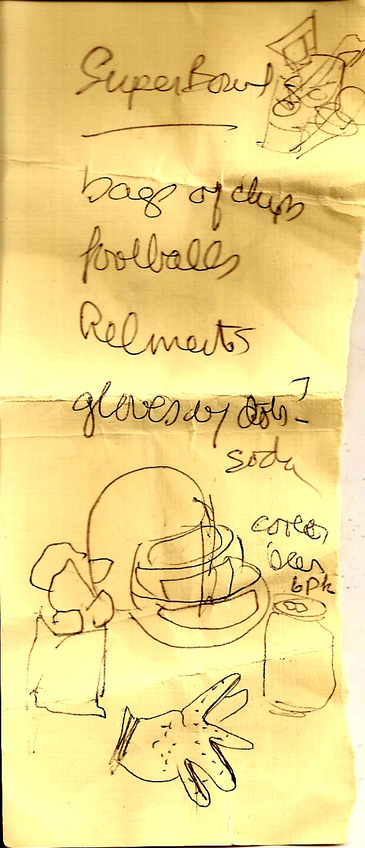 SuperBowl
bags of chips
footballs
Helmets
gloves w/ dots
soda
cooler
beer
6pk